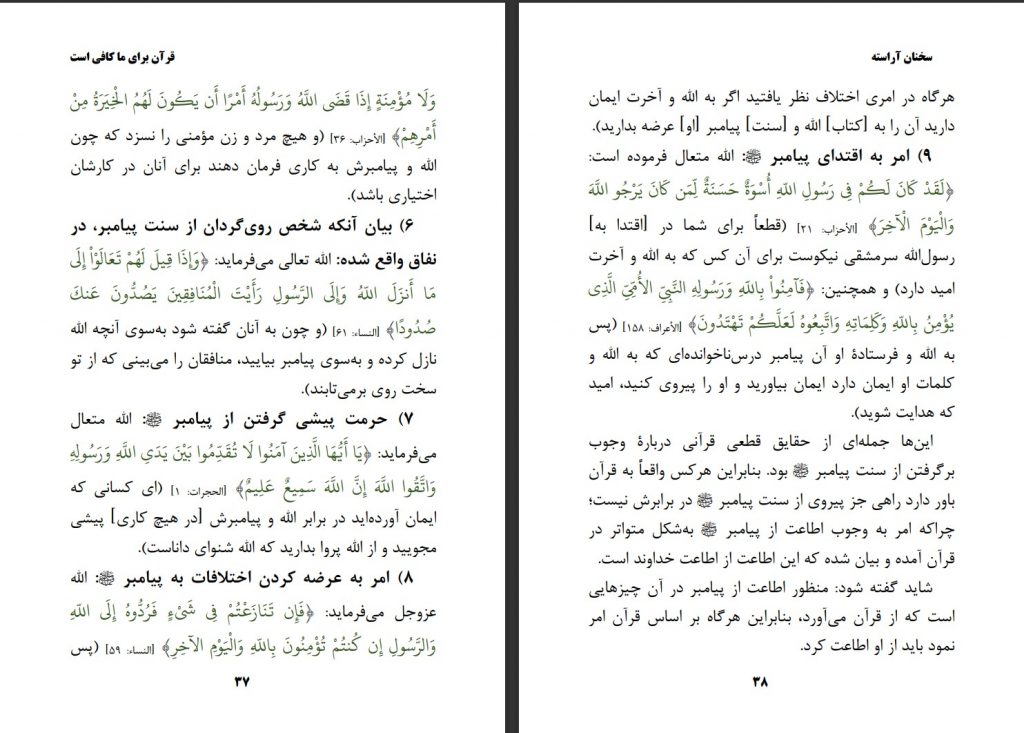 قرآن برای ما کافی است
وَلَا مُؤْمِنَةٍ إِذَا قَضَى اللَّهُ وَرَسُولُهُ أَمْرًا أَن يَكُونَ لَهُمُ الْخِيَرَةُ مِنْ
أَمْرِهِمْ﴾ [الأحزاب: ۳۶] (و هیچ مرد و زن مؤمنی را نسزد که چون
الله و پیامبرش به کاری فرمان دهند برای آنان در کارشان
اختیاری باشد).
۶) بیان آنکه شخص روی‌گردان از سنت پیامبر، در
نفاق واقع شده: الله تعالی می‌فرماید: ﴿وَإِذَا قِيلَ لَهُمْ تَعَالَوْاْ إِلَى
مَا أَنزَلَ اللّهُ وَإِلَى الرَّسُولِ رَأَيْتَ الْمُنَافِقِينَ يَصُدُّونَ عَنكَ
صُدُودًا﴾ [النساء: ۶۱] (و چون به آنان گفته شود به‌سوی آنچه الله
نازل کرده و به‌سوی پیامبر بیایید، منافقان را می‌بینی که از تو
سخت روی برمی‌تابند).
۷) حرمت پیشی گرفتن از پیامبر ﷺ: الله متعال
می‌فرماید: ﴿يَا أَيُّهَا الَّذِينَ آمَنُوا لَا تُقَدِّمُوا بَيْنَ يَدَيِ اللَّهِ وَرَسُولِهِ
وَاتَّقُوا اللَّهَ إِنَّ اللَّهَ سَمِيعٌ عَلِيمٌ﴾ [الحجرات: ۱] (ای کسانی که
ایمان آورده‌اید در برابر الله و پیامبرش [در هیچ کاری] پیشی
مجویید و از الله پروا بدارید که الله شنوای داناست).
۸) امر به عرضه کردن اختلافات به پیامبر ﷺ: الله
عزوجل می‌فرماید: ﴿فَإِن تَنَازَعْتُمْ فِي شَيْءٍ فَرُدُّوهُ إِلَى اللّهِ
وَالرَّسُولِ إِن كُنتُمْ تُؤْمِنُونَ بِاللّهِ وَالْيَوْمِ الآخِرِ﴾ [النساء: ۵۹] (پس
۳۷
سخنان آراسته
هرگاه در امری اختلاف نظر یافتید اگر به الله و آخرت ایمان
دارید آن را به [کتاب] الله و [سنت] پیامبر [او] عرضه بدارید).
۹) امر به اقتدای پیامبر ﷺ: الله متعال فرموده است:
﴿لَقَدْ كَانَ لَكُمْ فِي رَسُولِ اللَّهِ أُسْوَةٌ حَسَنَةٌ لِّمَن كَانَ يَرْجُو اللَّهَ
وَالْيَوْمَ الْآخِرَ﴾ [الأحزاب: ۲۱] (قطعاً برای شما در [اقتدا به]
رسول‌الله سرمشقی نیکوست برای آن کس که به الله و آخرت
امید دارد) و همچنین: ﴿فَآمِنُواْ بِاللّهِ وَرَسُولِهِ النَّبِيِّ الأُمِّيِّ الَّذِي
يُؤْمِنُ بِاللّهِ وَكَلِمَاتِهِ وَاتَّبِعُوهُ لَعَلَّكُمْ تَهْتَدُونَ﴾ [الأعراف: ۱۵۸] (پس
به الله و فرستادهٔ او آن پیامبر درس‌ناخوانده‌ای که به الله و
کلمات او ایمان دارد ایمان بیاورید و او را پیروی کنید، امید
که هدایت شوید).
این‌ها جمله‌ای از حقایق قطعی قرآنی دربارهٔ وجوب
برگرفتن از سنت پیامبر ﷺ بود. بنابراین هرکس واقعاً به قرآن
باور دارد راهی جز پیروی از سنت پیامبر ﷺ در برابرش نیست؛
چراکه امر به وجوب اطاعت از پیامبر ﷺ به‌شکل متواتر در
قرآن آمده و بیان شده که این اطاعت از اطاعت خداوند است.
شاید گفته شود: منظور اطاعت از پیامبر در آن چیزهایی
است که از قرآن می‌آورد، بنابراین هرگاه بر اساس قرآن امر
نمود باید از او اطاعت کرد.
۳۸